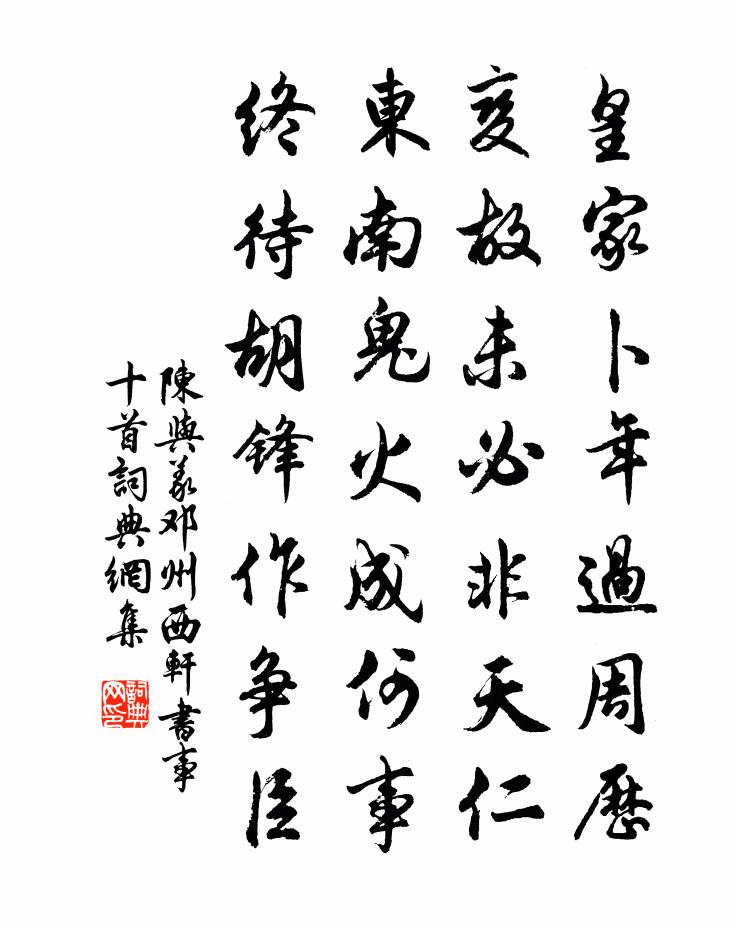 皇家卜年過周歷
變故未必非天仁
東南鬼火成何事
終待胡鋒作争臣
陳與義邓州西軒書事
十首詞典網集
詞典
网印